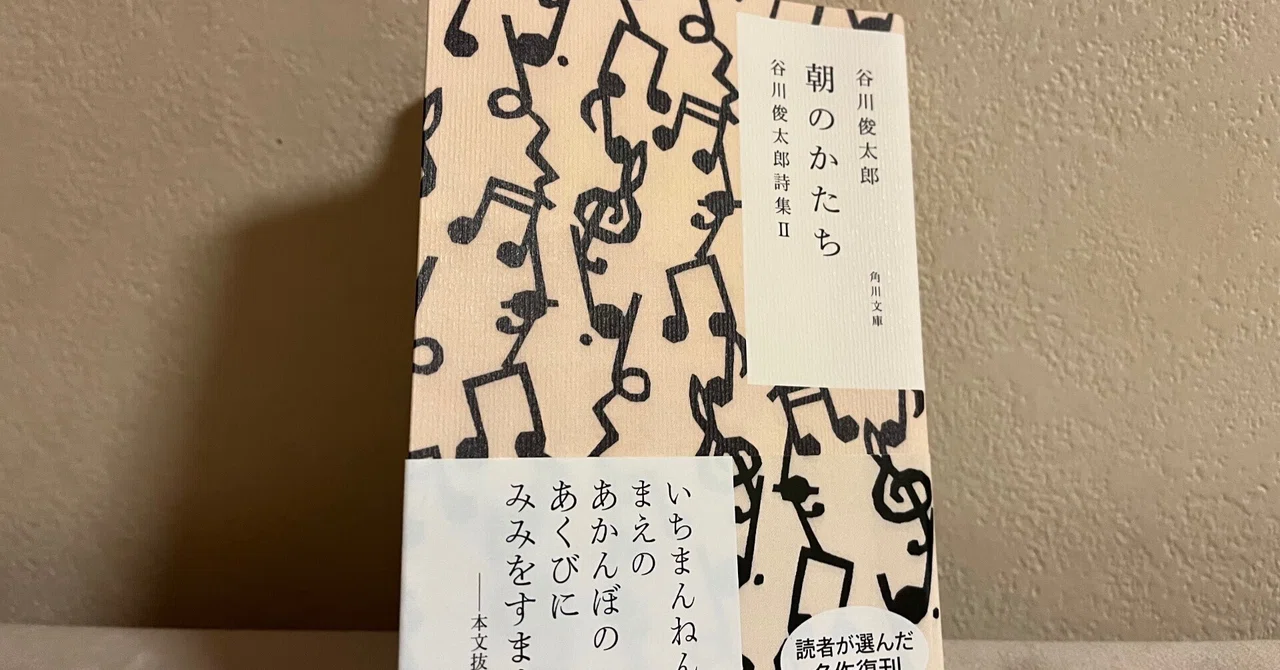 谷川俊太郎
朝のかたち
谷川俊太郎詩集Ⅱ
角川文庫
いちまんねん
まえの
あかんぼの
あくびに
みみをすま
――本文抜
読者が選んだ
名作復刊